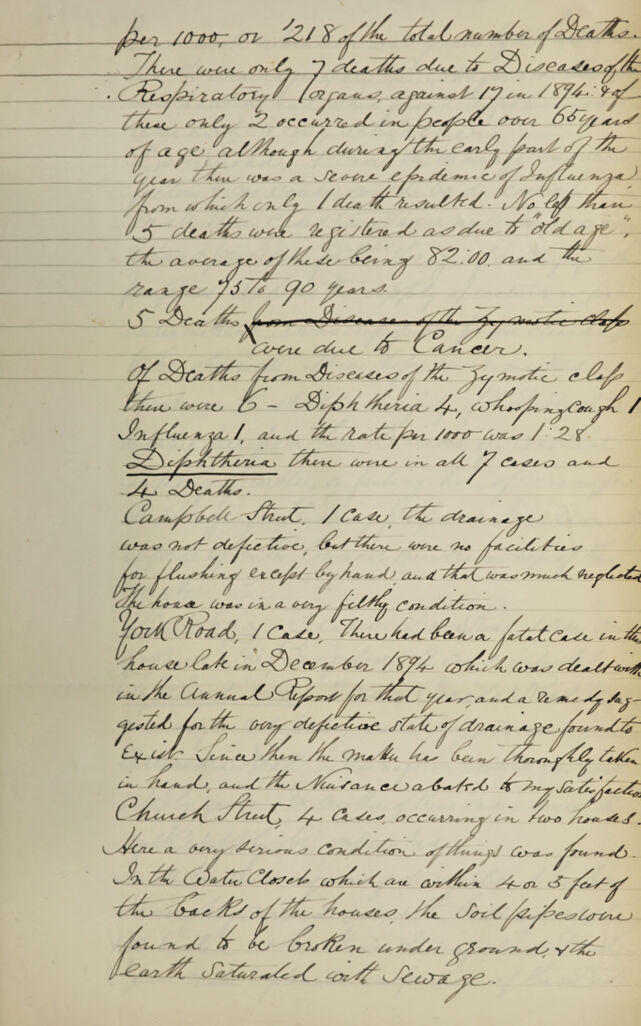 per 1000, or '218 of the total number of Deaths.
There were only 7 deaths due to Diseases of the
Respiratory organs, against 17 in 1894: & of
these only 2 occurred in people over 65 years
of age, although during the early part of the
year there was a severe epidemic of Influenza
from which only 1 death resulted. No less than
5 deaths were registered as due to "old age",
the average of these being 82.00. and the
range 75 to 90 years.
5 Deaths from Diseases of the Zymotic class
were due to Cancer.
Of Deaths from Diseases of the Zymotic class
there were 6 - Diphtheria 4, whooping cough 1
Influenza 1, and the rate per 1000 was 1.28.
Diphtheria there were in all 7 cases and
4 Deaths.
Campbell Street, 1 case, the drainage
was not defective, but there were no facilities
for flushing except by hand, and that was much neglected
The house was in a very filthy condition.
York Road, 1 case, There had been a fatal case in the
house late in December 1894 which was dealt with
in the Annual Report for that year, and a remedy sug-
gested for the very defective state of drainage found to
exist. Since then the matter has been thoroughly taken
in hand, and the Nuisance abated to my satisfaction
Church Street, 4 cases, occurring in two houses.
Here a very serious condition of things was found.
In the Water Closets which are within 4 or 5 feet of
the backs of the houses, the soil pipes were
found to be broken under ground, & the
earth saturated with sewage.